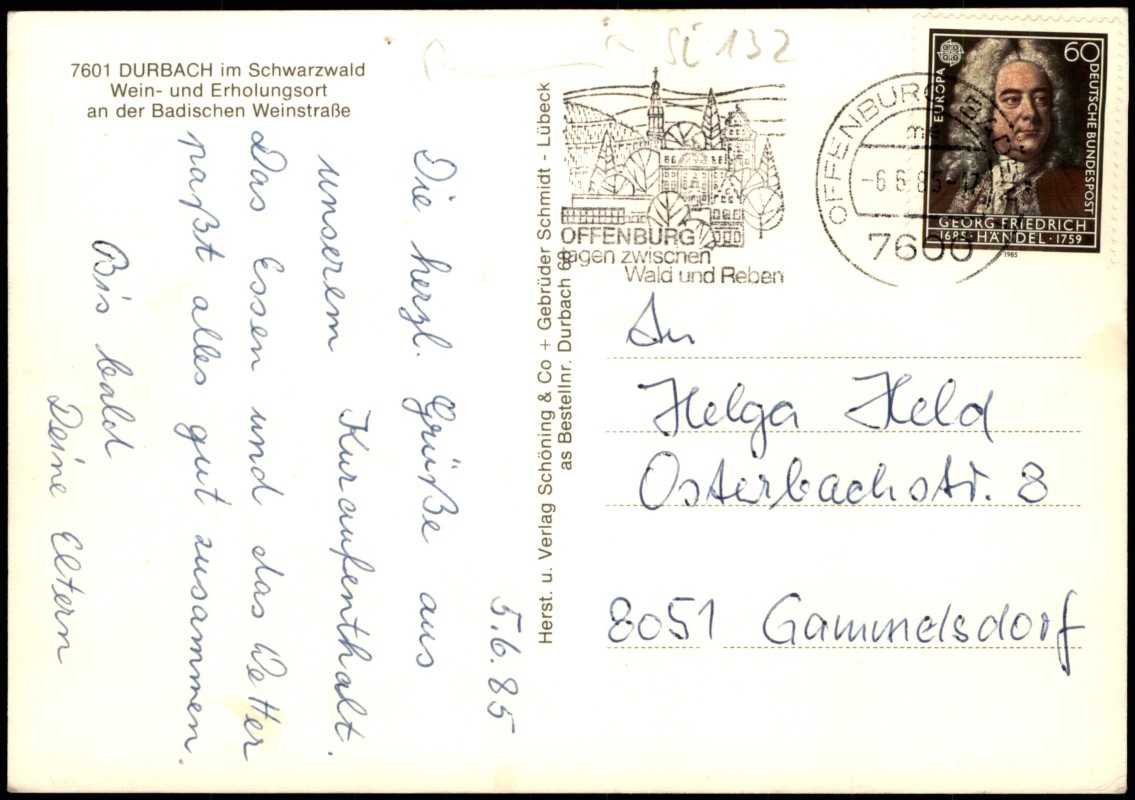 7601 DURBACH im Schwarzwald
Wein- und Erholungsort
an der Badischen Weinstraße
5.6.85
Die herzl. Grüße aus
unserem Kuraufenthalt.
Das Essen und das Wetter
paßt alles gut zusammen.
Bis bald
Deine Eltern
Herst. u. Verlag Schöning & Co + Gebrüder Schmidt - Lübeck
as Bestellnr. Durbach
SC 132
OFFENBURG
Tagen zwischen
Wald und Reben
OFFENBURG
-6.6.85-17
7600
EUROPA
60
DEUTSCHE BUNDESPOST
GEORG FRIEDRICH
1685 · HÄNDEL · 1759
1985
An
Helga Held
Osterbachstr. 8
8051 Gammelsdorf